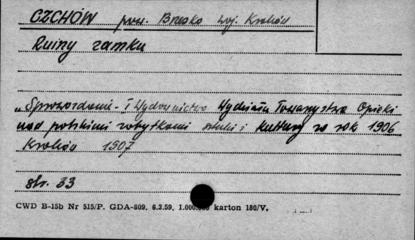 CZCHÓW pow. Brzesko woj. Kraków
Ruiny zamku
„Sprawozdanie i Wydawnictwo Wydziału Towarzystwa Opieki
nad polskimi zabytkami sztuki i kultury za rok 1906
Kraków 1907
str. 33
CWD B-15b Nr 515/P. GDA-809. 6.2.59. 1.000.000 karton 180/V.